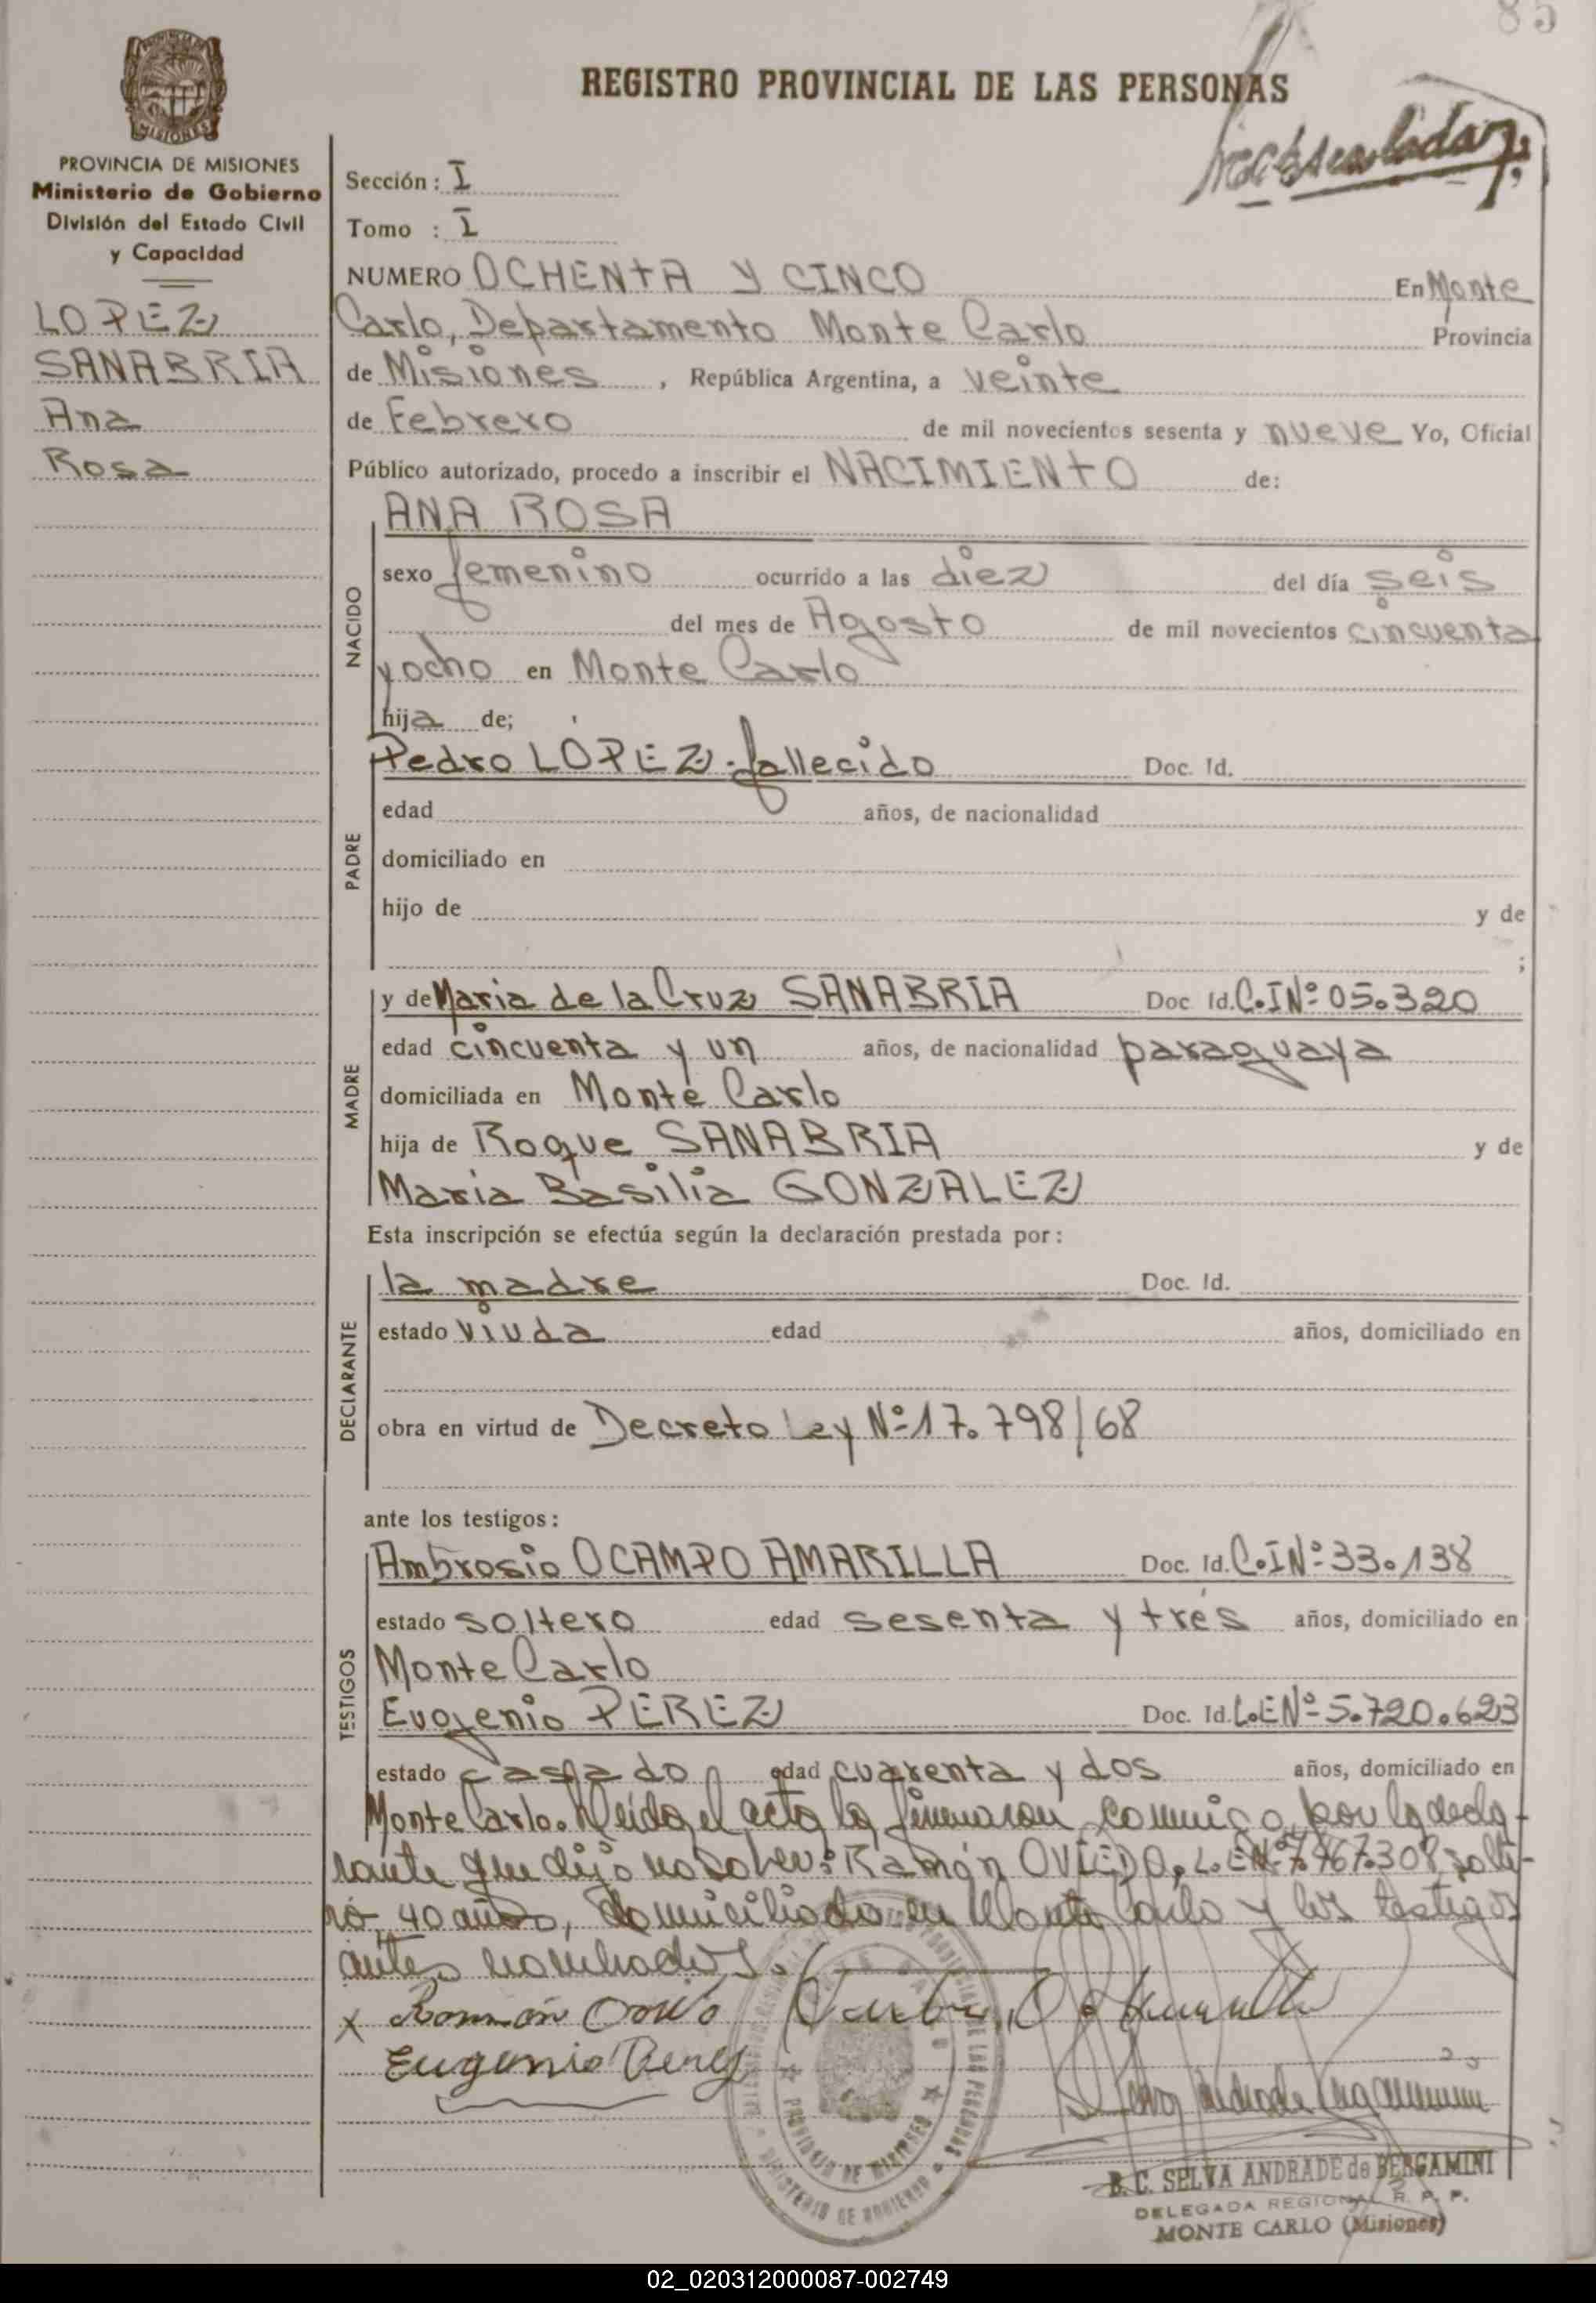 85
REGISTRO PROVINCIAL DE LAS PERSONAS
MISIONES
PROVINCIA DE MISIONES
Ministerio de Gobierno
División del Estado Civil
y Capacidad
LOPEZ
SANABRIA
Ana
Rosa
Sección: I
Tomo : I
NUMERO OCHENTA Y CINCO En Monte
Carlo, Departamento Monte Carlo Provincia
de Misiones, República Argentina, a veinte
de Febrero de mil novecientos sesenta y nueve Yo, Oficial
Público autorizado, procedo a inscribir el NACIMIENTO de:
NACIDO
ANA ROSA
sexo femenino ocurrido a las diez del día seis
del mes de Agosto de mil novecientos cincuenta
y ocho en Monte Carlo
hija de;
PADRE
Pedro LÓPEZ.fallecido Doc. Id.
edad años, de nacionalidad
domiciliado en
hijo de y de
;
MADRE
y de Maria de la Cruz SANABRIA Doc Id. C.I Nº 05.320
edad cincuenta y un años, de nacionalidad paraguaya
domiciliada en Monte Carlo
hija de Roque SANABRIA y de
Maria Basilia GONZALEZ
Esta inscripción se efectúa según la declaración prestada por:
DECLARANTE
la madre Doc. Id.
estado viuda edad años, domiciliado en
obra en virtud de Decreto Ley Nº 17.798/68
ante los testigos:
TESTIGOS
Ambrosio OCAMPO AMARILLA Doc. Id. C.I Nº 33.138
estado soltero edad sesenta y tres años, domiciliado en
Monte Carlo
Eugenio PEREZ Doc. Id. L.E Nº 5.720.623
estado casado edad cuarenta y dos años, domiciliado en
Monte Carlo. Leída el acta la firmaron conmigo, por la decla-
rante que dijo no saber: Ramón OVIEDO, L.E Nº 7.467.308, solte-
ro, 40 años, domiciliado en Monte Carlo y los testigos
antes nombrados.
x Ramón Oviedo
Eugenio Perez
PROVINCIA DE MISIONES
MINISTERIO DE GOBIERNO
B. C. SELVA ANDRADE de BERGAMINI
DELEGADA REGIONAL R. P. P.
MONTE CARLO (Misiones)
02_020312000087-002749